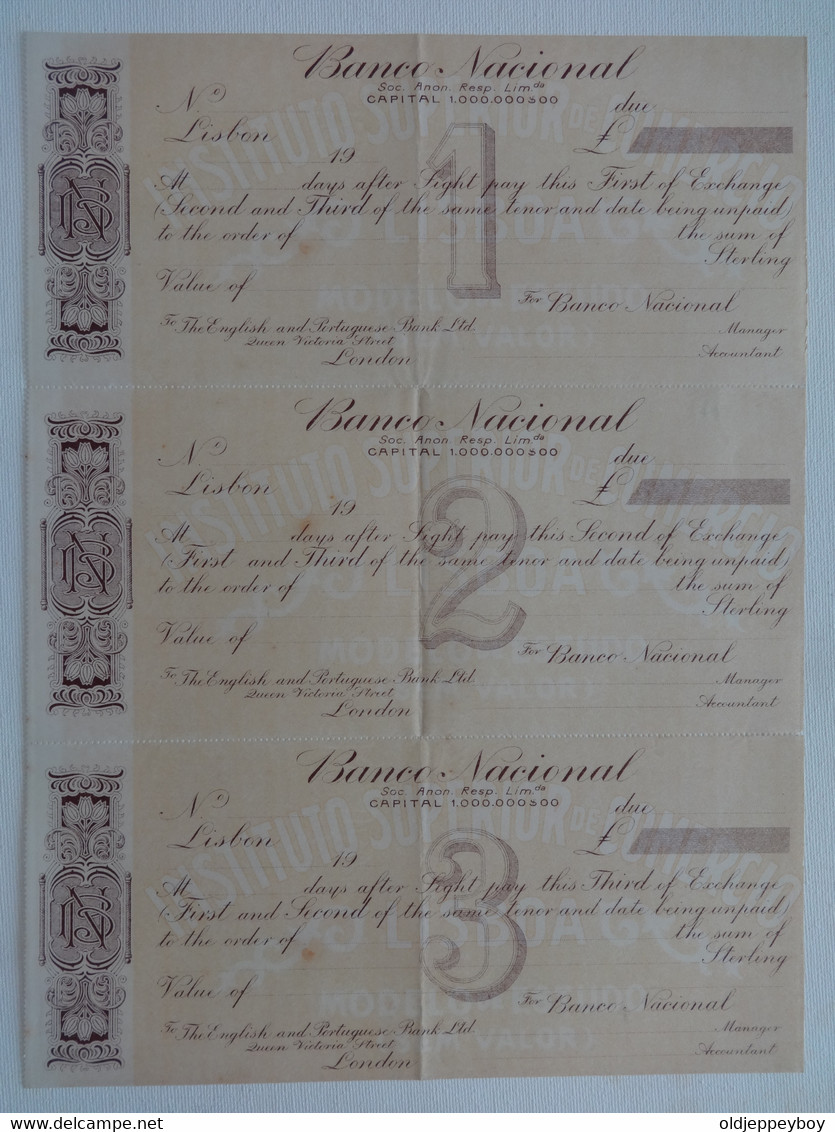 Banco Nacional
Soc. Anon. Resp. Lim.da
CAPITAL 1.000.000$00
N.o due
Lisbon 19 £
1
At days after Sight pay this First of Exchange
(Second and Third of the same tenor and date being unpaid)
to the order of the sum of
Sterling
Value of
For Banco Nacional
To The English and Portuguese Bank Ltd. Manager
Queen Victoria Street Accountant
London
INSTITUTO SUPERIOR DE COMERCIO
LISBOA
Banco Nacional
Soc. Anon. Resp. Lim.da
CAPITAL 1.000.000$00
N.o due
Lisbon 19 £
2
At days after Sight pay this Second of Exchange
(First and Third of the same tenor and date being unpaid)
to the order of the sum of
Sterling
Value of
For Banco Nacional
To The English and Portuguese Bank Ltd. Manager
Queen Victoria Street Accountant
London
INSTITUTO SUPERIOR DE COMERCIO
LISBOA
Banco Nacional
Soc. Anon. Resp. Lim.da
CAPITAL 1.000.000$00
N.o due
Lisbon 19 £
3
At days after Sight pay this Third of Exchange
(First and Second of the same tenor and date being unpaid)
to the order of the sum of
Sterling
Value of
For Banco Nacional
To The English and Portuguese Bank Ltd. Manager
Queen Victoria Street Accountant
London
INSTITUTO SUPERIOR DE COMERCIO
LISBOA
VALOR)
delcampe.net oldjeppeyboy